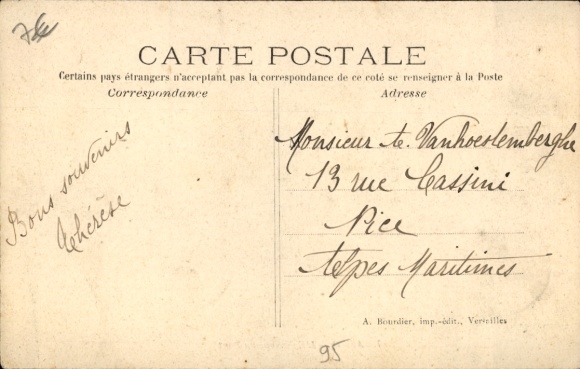 7€
CARTE POSTALE
Certains pays étrangers n'acceptant pas la correspondance de ce coté se renseigner à la Poste
Correspondance
Adresse
Bons souvenirs
Thérèse
Monsieur A. Vanhoestemberghe
13 rue Cassini
Nice
Alpes Maritimes
A. Bourdier, imp.-édit., Versailles
95